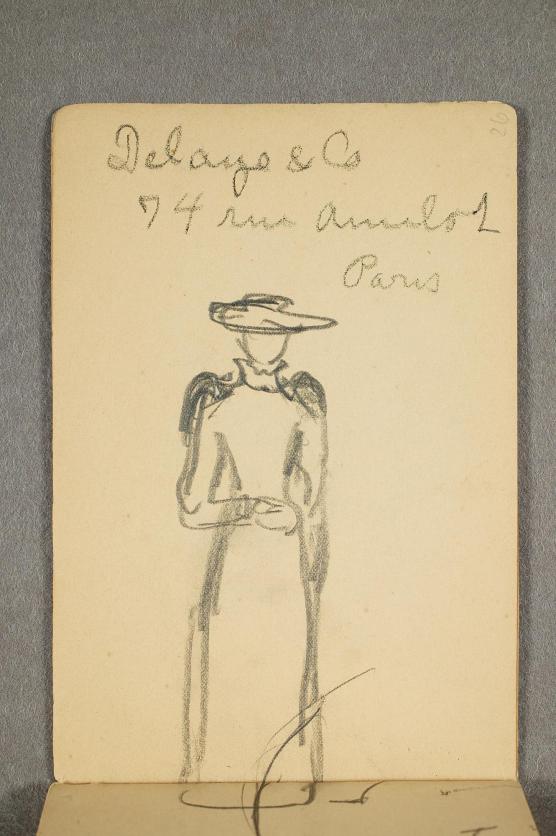 Delaye & Co
74 rue Amelot
Paris
26